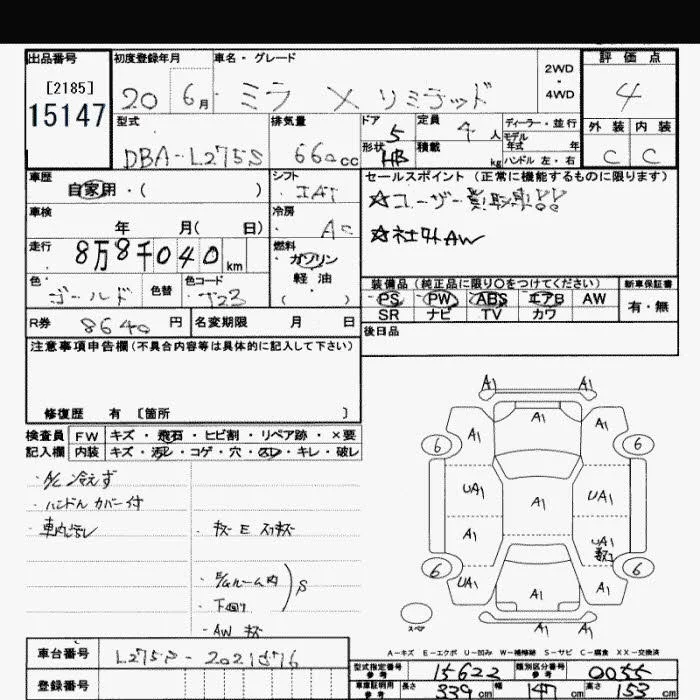 出品番号
[2185]
15147
初度登録年月
20 6月
車名・グレード
ミラ X リミテッド
2WD
・
4WD
評価点
4
外装 内装
C C
型式
DBA-L275S
排気量
660cc
ドア
5
形状
HB
定員
4人
積載
kg
ディーラー・並行
モデル
年式 年
ハンドル 左・右
車歴
自家用・( )
シフト
IAT
セールスポイント(正常に機能するものに限ります)
☆ユーザー買取車!!
☆社外AW
車検
年 月( 日)
冷房
AC
走行
8万8千040km
燃料
ガソリン
軽油
( )
色
ゴールド
色替
色コード
T23
装備品(純正品に限り〇をつけてください)
PS PW ABS エアB AW
SR ナビ TV カワ
新車保証書
有・無
R券
8640円
名変期限 月 日
後日品
注意事項申告欄(不具合内容等は具体的に記入して下さい)
修復歴 有 〔箇所 〕
検査員
記入欄
FW キズ・飛石・ヒビ割・リペア跡・×要
内装 キズ・汚レ・コゲ・穴・スレ・キレ・破レ
・A/C冷えず
・ハンドルカバー付
・車内汚レ
・下回り
S
・AW
A1 A1
A1
A1 A1
6 6
UA1 A1 UA1
A1 UA1
6 6
UA1 A1 A1
A1 A1
スペア
A-キズ E-エクボ U-凹み W-補修跡 S-サビ C-腐食 XX-交換済
車台番号
L275S-2021576
登録番号
型式指定番号
参考
15622
類別区分番号
参考
0055
車庫証明用
参考
長さ 339cm 幅 147cm 高さ 153cm